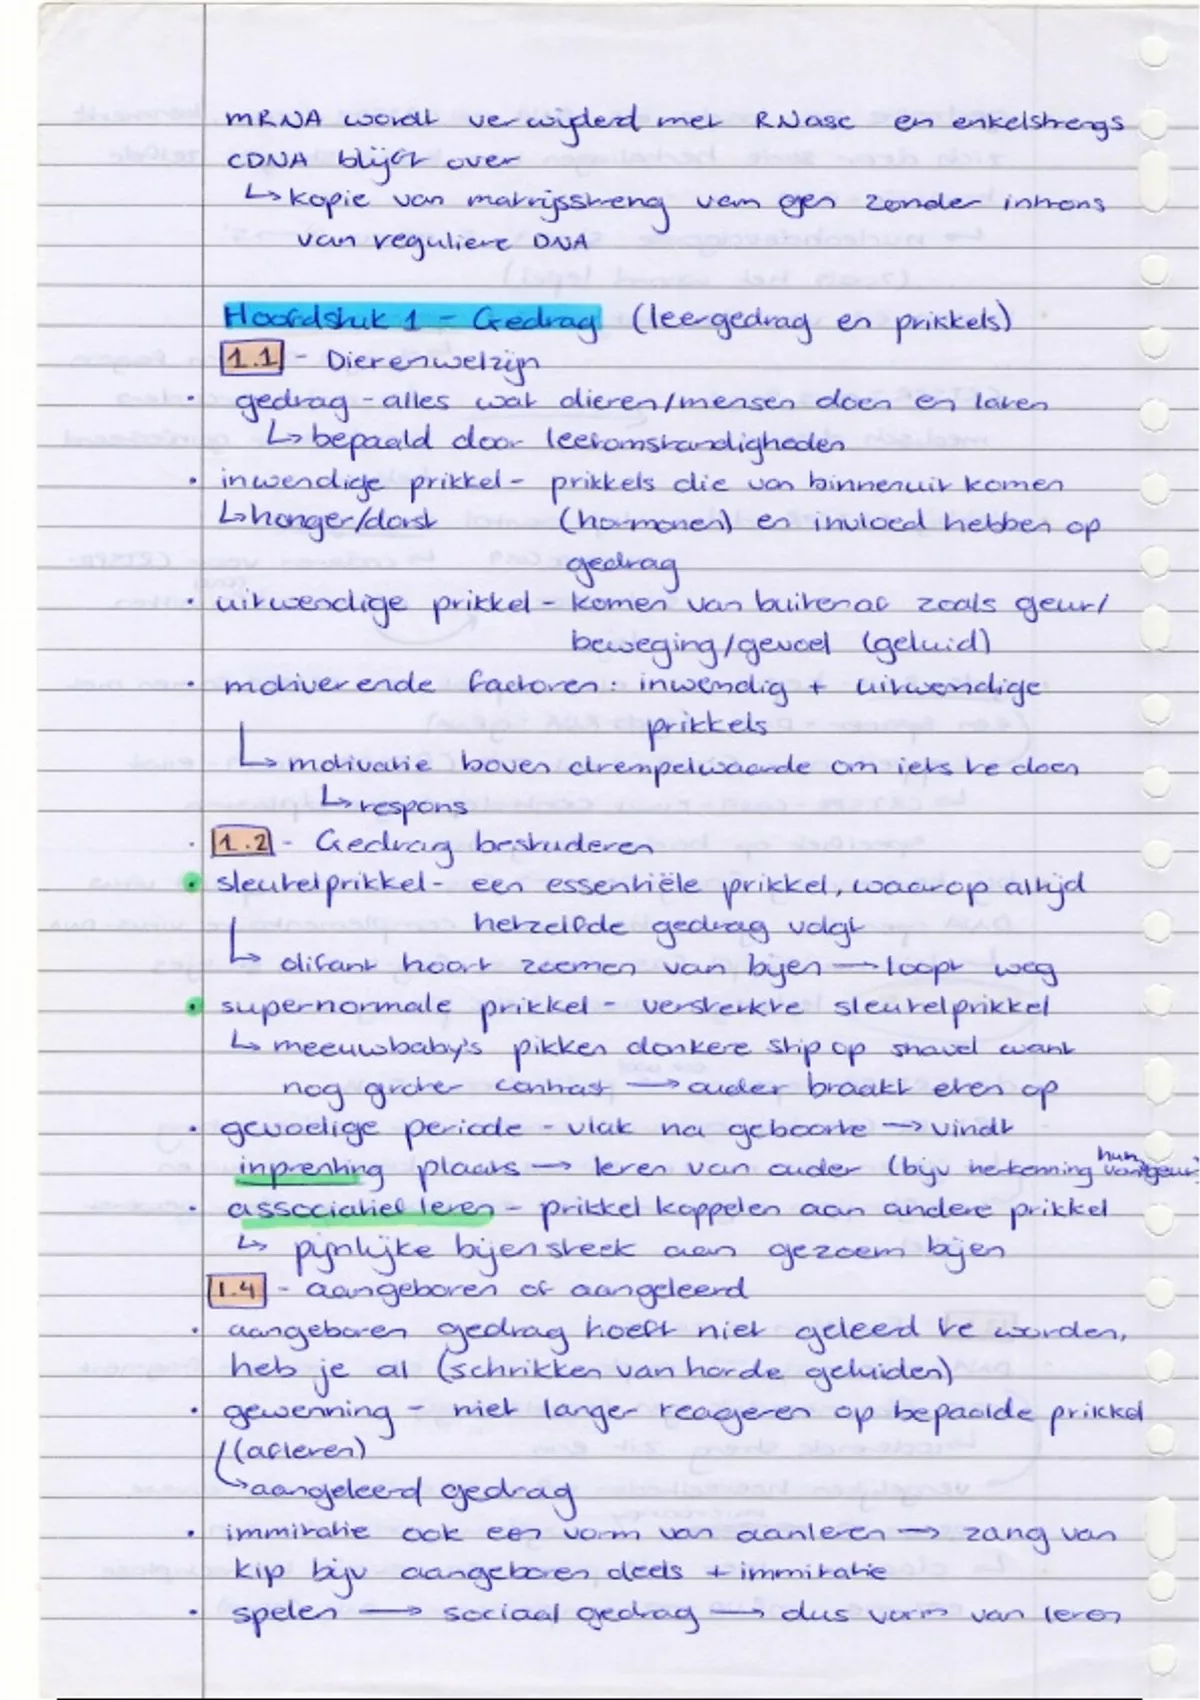 mRNA wordt verwijderd met RNase en enkelstrengs
cDNA blijft over
↳ kopie van matrijsstreng van gen zonder introns
van reguliere DNA
Hoofdstuk 1 - Gedrag (leergedrag en prikkels)
1.1 - Dierenwelzijn
• gedrag - alles wat dieren/mensen doen en laten
↳ bepaald door leefomstandigheden
• inwendige prikkel - prikkels die van binnenuit komen
↳ honger/dorst (hormonen) en invloed hebben op
gedrag
• uitwendige prikkel - komen van buitenaf zoals geur/
beweging/gevoel (geluid)
• motiverende factoren: inwendig + uitwendige
prikkels
↳ motivatie boven drempelwaarde om iets te doen
↳ respons
• 1.2 - Gedrag bestuderen
• sleutelprikkel - een essentiële prikkel, waarop altijd
hetzelfde gedrag volgt
↳ olifant hoort zoemen van bijen → loopt weg
• supernormale prikkel - versterkte sleutelprikkel
↳ meeuwbaby's pikken donkere stip op snavel want
nog groter contrast → ouder braakt eten op
• gevoelige periode - vlak na geboorte → vindt
inprenting plaats → leren van ouder (bijv herkenning van hun geur)
• associatief leren - prikkel koppelen aan andere prikkel
↳ pijnlijke bijensteek aan gezoem bijen
1.4 - aangeboren of aangeleerd
• aangeboren gedrag hoeft niet geleerd te worden,
heb je al (schrikken van harde geluiden)
• gewenning - niet langer reageren op bepaalde prikkel
(afleren)
↳ aangeleerd gedrag
• immitatie ook een vorm van aanleren → zang van
kip bijv aangeboren deels + immitatie
• spelen → sociaal gedrag → dus vorm van leren